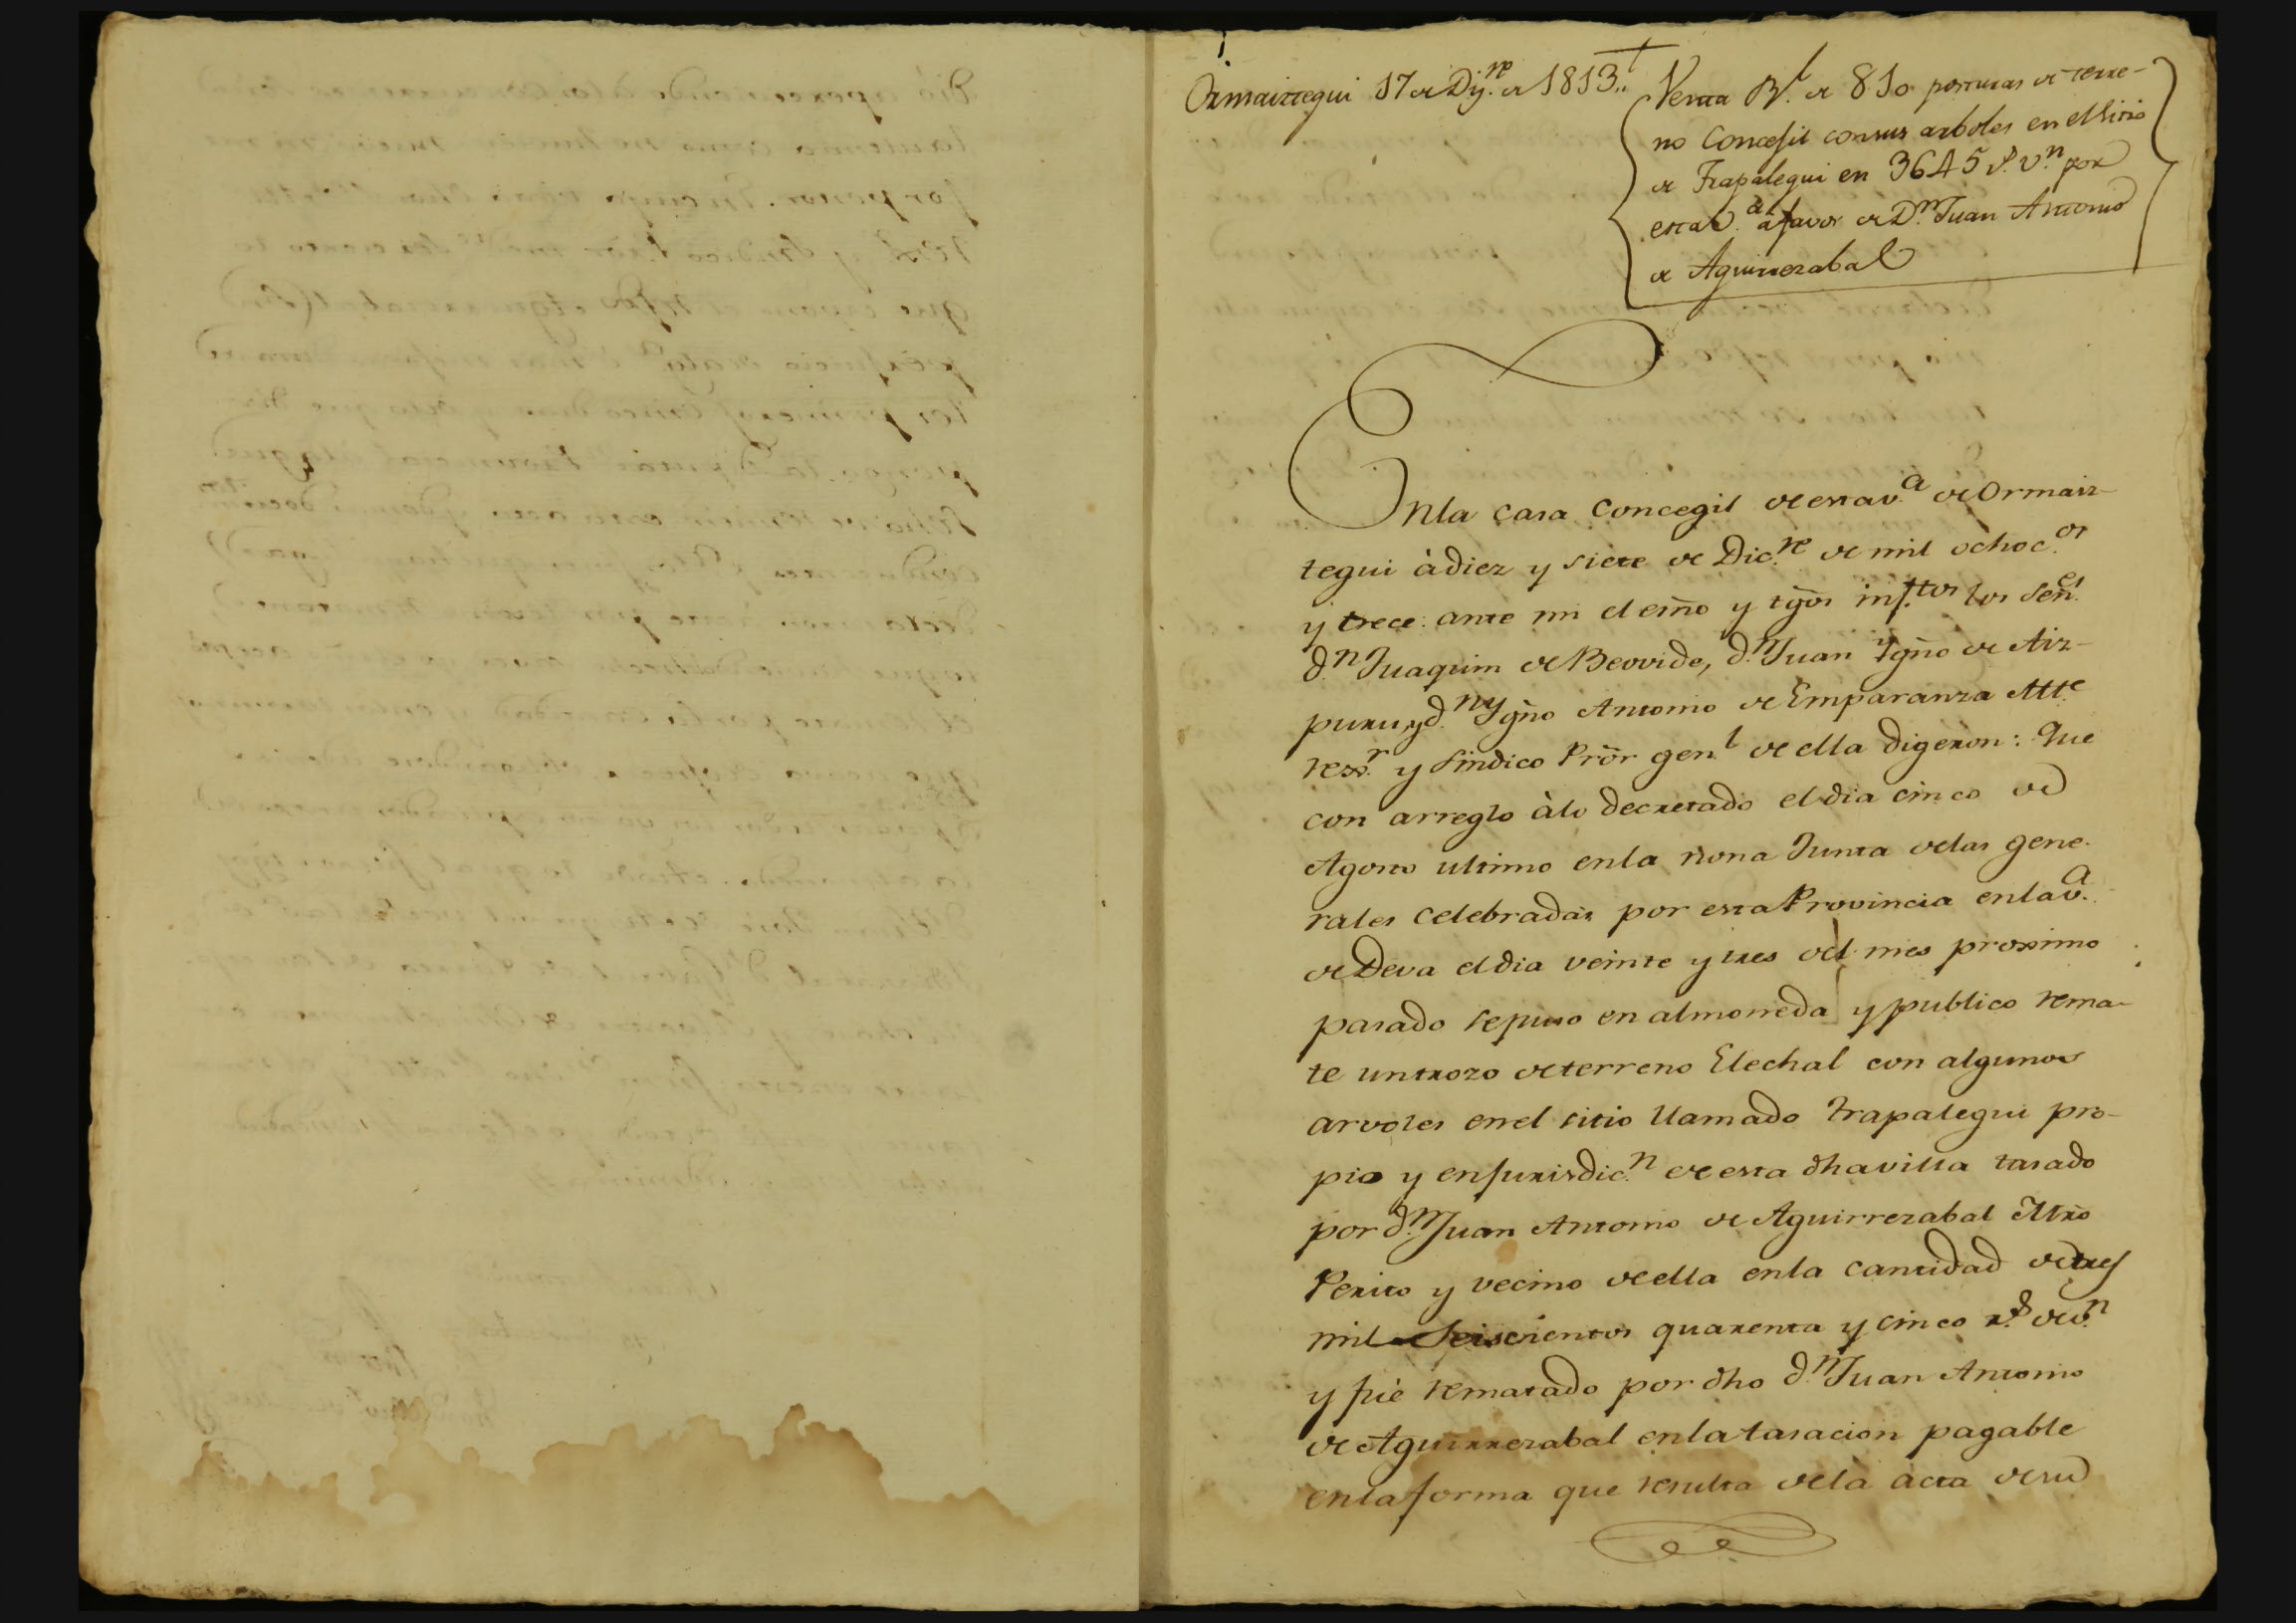 Ormaiztegui 17 de Diz.re de 1813..
Venta R.l de 810 posturas de terre-
no Concegil con sus arboles en el sitio
de Trapalegui en 3645 r.s v.n por
esta v.a a favor de D.n Juan Antonio
de Aguirrezabal
En la casa Concegil de esta v.a de Ormaiz-
tegui à diez y siete de Dic.re de mil ochoc.os
y trece: ante mi el esño y tgõs inf.tos los Señ.es
d.n Juaquim de Beovide, d.n Juan Ygño de Aiz-
puru, y d.n Ygño Antonio de Emparanza Alt.e
rexr. y Sindico Prõr gen.l de ella digeron: Que
con arreglo à lo decretado el dia cinco de
Agosto ultimo en la nona Junta de las gene-
rales celebradas por esta Provincia en la v.a
de Deva el dia veinte y tres del mes proximo
pasado se puso en almoneda y publico rema-
te un trozo de terreno Elechal con algunos
arvoles en el sitio llamado Trapalegui pro-
pio y en jurisdic.n de esta dha villa tasado
por d.n Juan Antonio de Aguirrezabal Mro
Perito y vecino de ella en la cantidad de tres
mil Seiscientos quarenta y cinco r.s de v.n
y fué rematado por dho d.n Juan Antonio
de Aguirrezabal en la tasacion pagable
en la forma que resulta de la acta de su